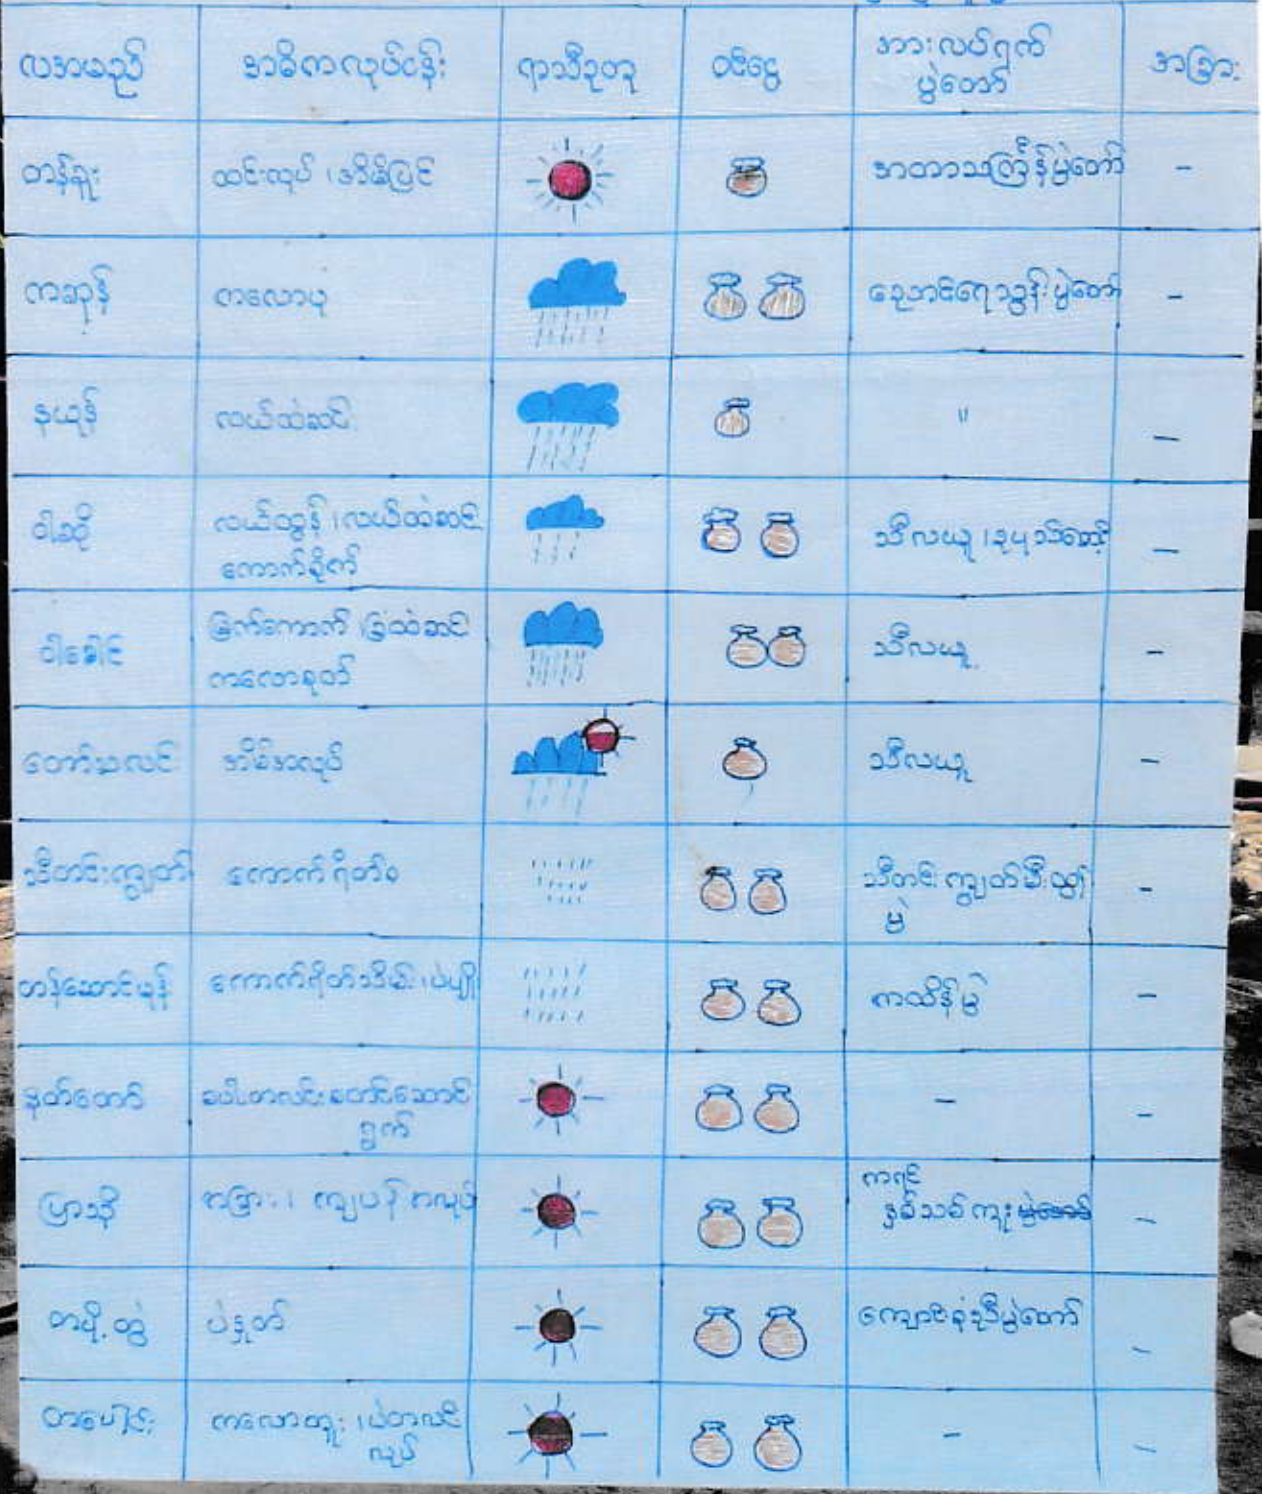 လအမည်
အဓိကလုပ်ငန်း
ရာသီဥတု
ဝင်ငွေ
အားလပ်ရက်
ပွဲတော်
အခြား
တန်ခူး
ထင်းလုပ် ၊ အိမ်ပြင်
အတာသင်္ကြန်ပွဲတော်
-
ကဆုန်
ကလောပု
ညောင်ရေသွန်းပွဲတော်
-
နယုန်
လယ်ထဲဆင်း
"
-
ဝါဆို
လယ်ထွန် ၊ လယ်ထဲဆင်း
ကောက်စိုက်
သီလယူ ၊ ဥပုသ်စောင့်
-
ဝါခေါင်
မြက်ကောက် ၊ ခြံထဲဆင်း
ကလောခုတ်
သီလယူ
-
တော်သလင်း
အိမ်အလုပ်
သီလယူ
-
သီတင်းကျွတ်
ကောက်ရိတ်စ
သီတင်းကျွတ်မီးထွန်း
ပွဲ
-
တန်ဆောင်မုန်း
ကောက်ရိတ်သိမ်း ၊ ပဲပျို
ကထိန်ပွဲ
-
နတ်တော်
စပါးတလင်း
ရွက်
-
-
ပြာသို
အခြား ၊ ကျပန်းအလုပ်
ကရင်
နှစ်သစ်ကူး ပွဲတော်
-
တပို့တွဲ
ပဲနှုတ်
ကျောင်း ပွဲတော်
-
တပေါင်း
ကလောတူး ၊ ပဲတလင်း
လုပ်
-
-